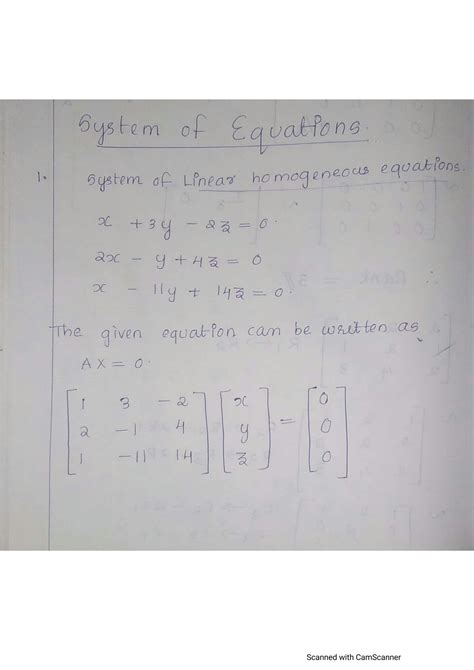 System of Equations.
1. System of Linear homogeneous equations.
x + 3y - 2z = 0.
2x - y + 4z = 0
x - 11y + 14z = 0.
The given equation can be written as
AX = 0.
[1 3 -2] [x] [0]
[2 -1 4] [y] = [0]
[1 -11 14] [z] [0]
Scanned with CamScanner